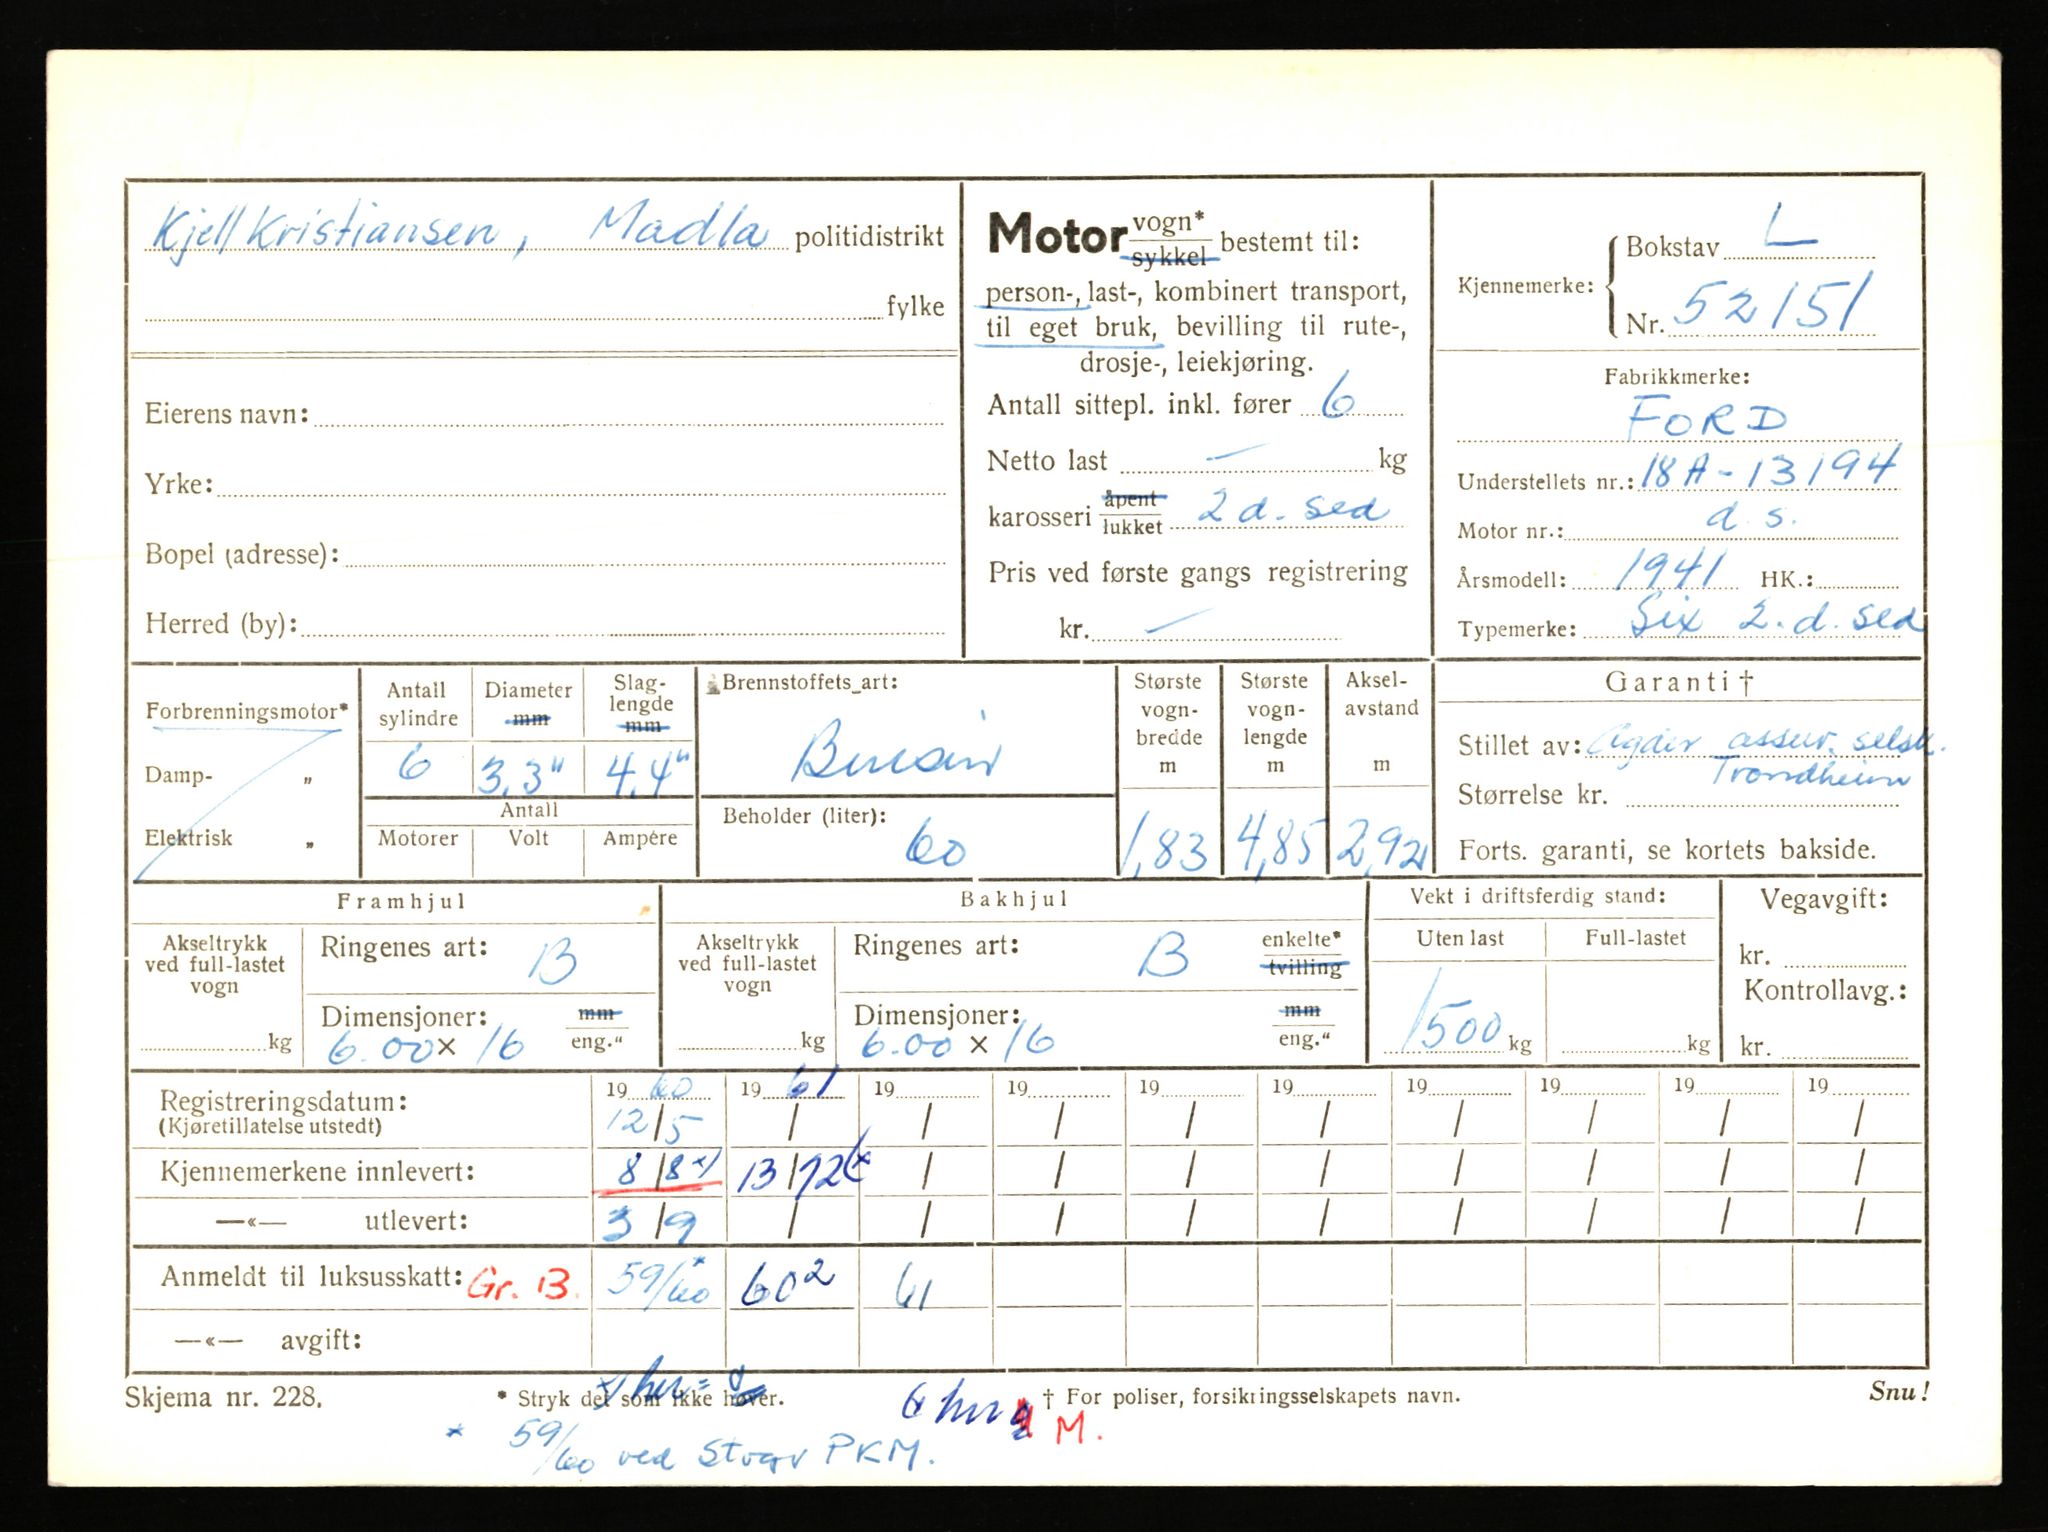 Kjell Kristiansen, Madla politidistrikt
fylke
Eierens navn:
Yrke:
Bopel (adresse):
Herred (by):
Motor vogn* sykkel bestemt til:
person-, last-, kombinert transport,
til eget bruk, bevilling til rute-,
drosje-, leiekjøring.
Antall sittepl. inkl. fører 6
Netto last — kg
karosseri åpent lukket 2 d. sed
Pris ved første gangs registrering
kr. —
Kjennemerke: Bokstav L
Nr. 52151
Fabrikkmerke:
FORD
Understellets nr.: 18A-13194
Motor nr.: d. s.
Årsmodell: 1941 HK.:
Typemerke: Six 2. d. sed
Forbrenningsmotor*
Damp- „
Elektrisk „
Antall sylindre
Diameter mm
Slaglengde mm
6 3,3" 4,4"
Antall
Motorer Volt Ampère
Brennstoffets art:
Bensin
Beholder (liter):
60
Største vogn-bredde m
1,83
Største vogn-lengde m
4,85
Aksel-avstand m
2,92
Garanti †
Stillet av: Agder assur. selsk.
Trondheim
Størrelse kr.
Forts. garanti, se kortets bakside.
Framhjul
Akseltrykk ved full-lastet vogn
kg
Ringenes art: B
Dimensjoner: mm
6.00 × 16 eng."
Bakhjul
Akseltrykk ved full-lastet vogn
kg
Ringenes art: B enkelte* tvilling
Dimensjoner: mm
6.00 × 16 eng."
Vekt i driftsferdig stand:
Uten last Full-lastet
1500 kg kg
Vegavgift:
kr.
Kontrollavg.:
kr.
19 60 19 61 19 19 19 19 19 19 19 19
Registreringsdatum: 12/5 / / / / / / / / /
(Kjøretillatelse utstedt)
Kjennemerkene innlevert: 8/8 x) 13/12 / / / / / / / /
—«— utlevert: 3/9 / / / / / / / / /
Anmeldt til luksusskatt: Gr. B. 59/60 * 60 2 61
—«— avgift:
Skjema nr. 228.
* Stryk det som ikke høver.
† For poliser, forsikringsselskapets navn.
Snu!
M.
* 59/60 ved PKM.